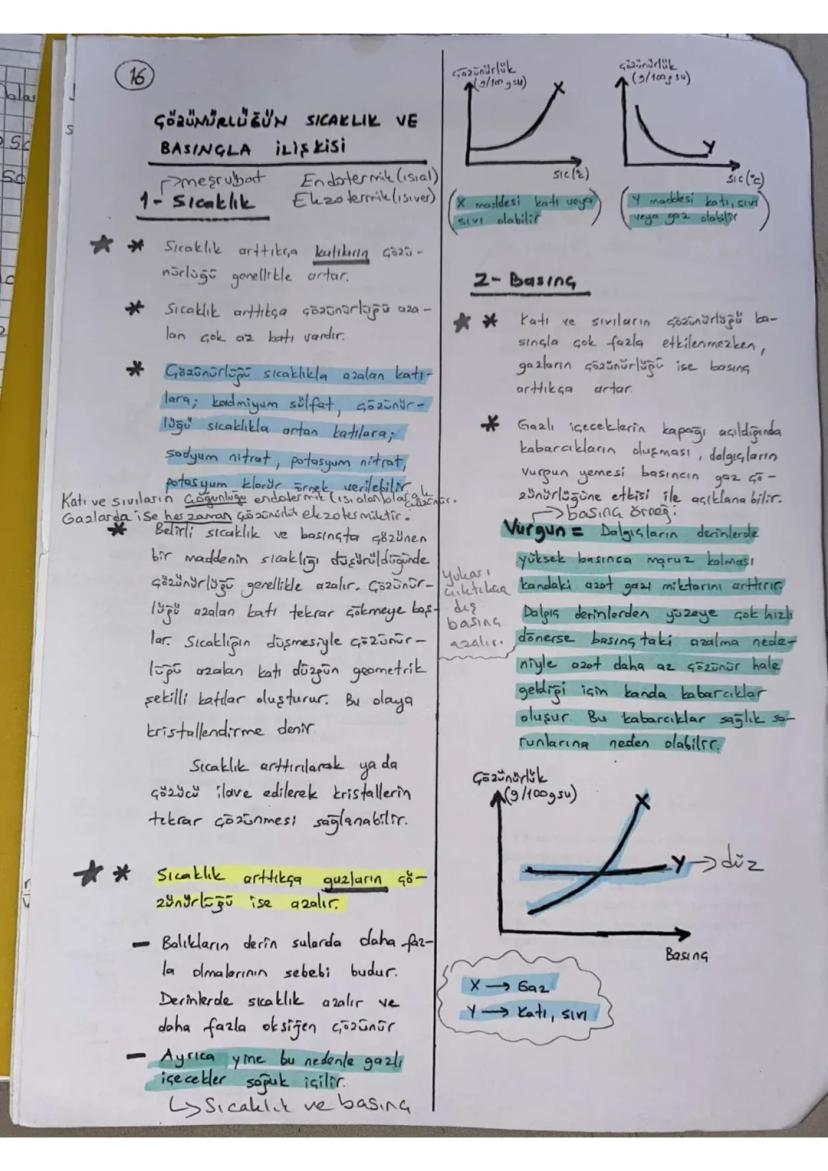 16
ÇÖZÜNÜRLÜĞÜN SICAKLIK VE
BASINÇLA İLİŞKİSİ
→meşrubat Endotermik (ısıal)
1- Sıcaklık Ekzotermik (ısıver)
* Sıcaklık arttıkça katıların çözü-
nürlüğü genellikle artar.
* Sıcaklık arttıkça çözünürlüğü aza-
lan çok az katı vardır.
* Çözünürlüğü sıcaklıkla azalan katı-
lara; kadmiyum sülfat, çözünür-
lüğü sıcaklıkla artan katılara;
sodyum nitrat, potasyum nitrat,
potasyum klorür örnek verilebilir
Katı ve sıvıların çoğunluğu endotermik (ısı alan) olarak çözünür.
Gazlarda ise her zaman çözünürlük ekzotermiktir.
* Belirli sıcaklık ve basınçta çözünen
bir maddenin sıcaklığı düşürüldüğünde
çözünürlüğü genellikle azalır. Çözünür-
lüğü azalan katı tekrar çökmeye baş-
lar. Sıcaklığın düşmesiyle çözünür-
lüğü azalan katı düzgün geometrik
şekilli katılar oluşturur. Bu olaya
kristallendirme denir
Sıcaklık arttırılarak ya da
çözücü ilave edilerek kristallerin
tekrar çözünmesi sağlanabilir.
* Sıcaklık arttıkça gazların çö-
zünürlüğü ise azalır.
- Balıkların derin sularda daha faz-
la olmalarının sebebi budur.
Derinlerde sıcaklık azalır ve
daha fazla oksijen çözünür
- Ayrıca yine bu nedenle gazlı
içecekler soğuk içilir.
↳ Sıcaklık ve basınç
Çözünürlük
(g/100 g su)
X
Sıc (°c)
(X maddesi katı veya
sıvı olabilir)
Çözünürlük
(g/100 g su)
Y
Sıc (°c)
(Y maddesi katı, sıvı
veya gaz olabilir)
2- Basınç
* Katı ve sıvıların çözünürlüğü ba-
sınçla çok fazla etkilenmezken,
gazların çözünürlüğü ise basınç
arttıkça artar.
* Gazlı içeceklerin kapağı açıldığında
kabarcıkların oluşması, dalgıçların
vurgun yemesi basıncın gaz çö-
zünürlüğüne etkisi ile açıklanabilir.
→basınç örneği
Vurgun = Dalgıçların derinlerde
yüksek basınca maruz kalması
kandaki azot gazı miktarını arttırır.
Dalgıç derinlerden yüzeye çok hızlı
dönerse basınçtaki azalma nede-
niyle azot daha az çözünür hale
geldiği için kanda kabarcıklar
oluşur. Bu kabarcıklar sağlık so-
runlarına neden olabilir.
yukarı
çıktıkça
dış
basınç
azalır.
Çözünürlük
(g/100gsu)
X
Y → düz
Basınç
X → Gaz
Y → Katı, sıvı